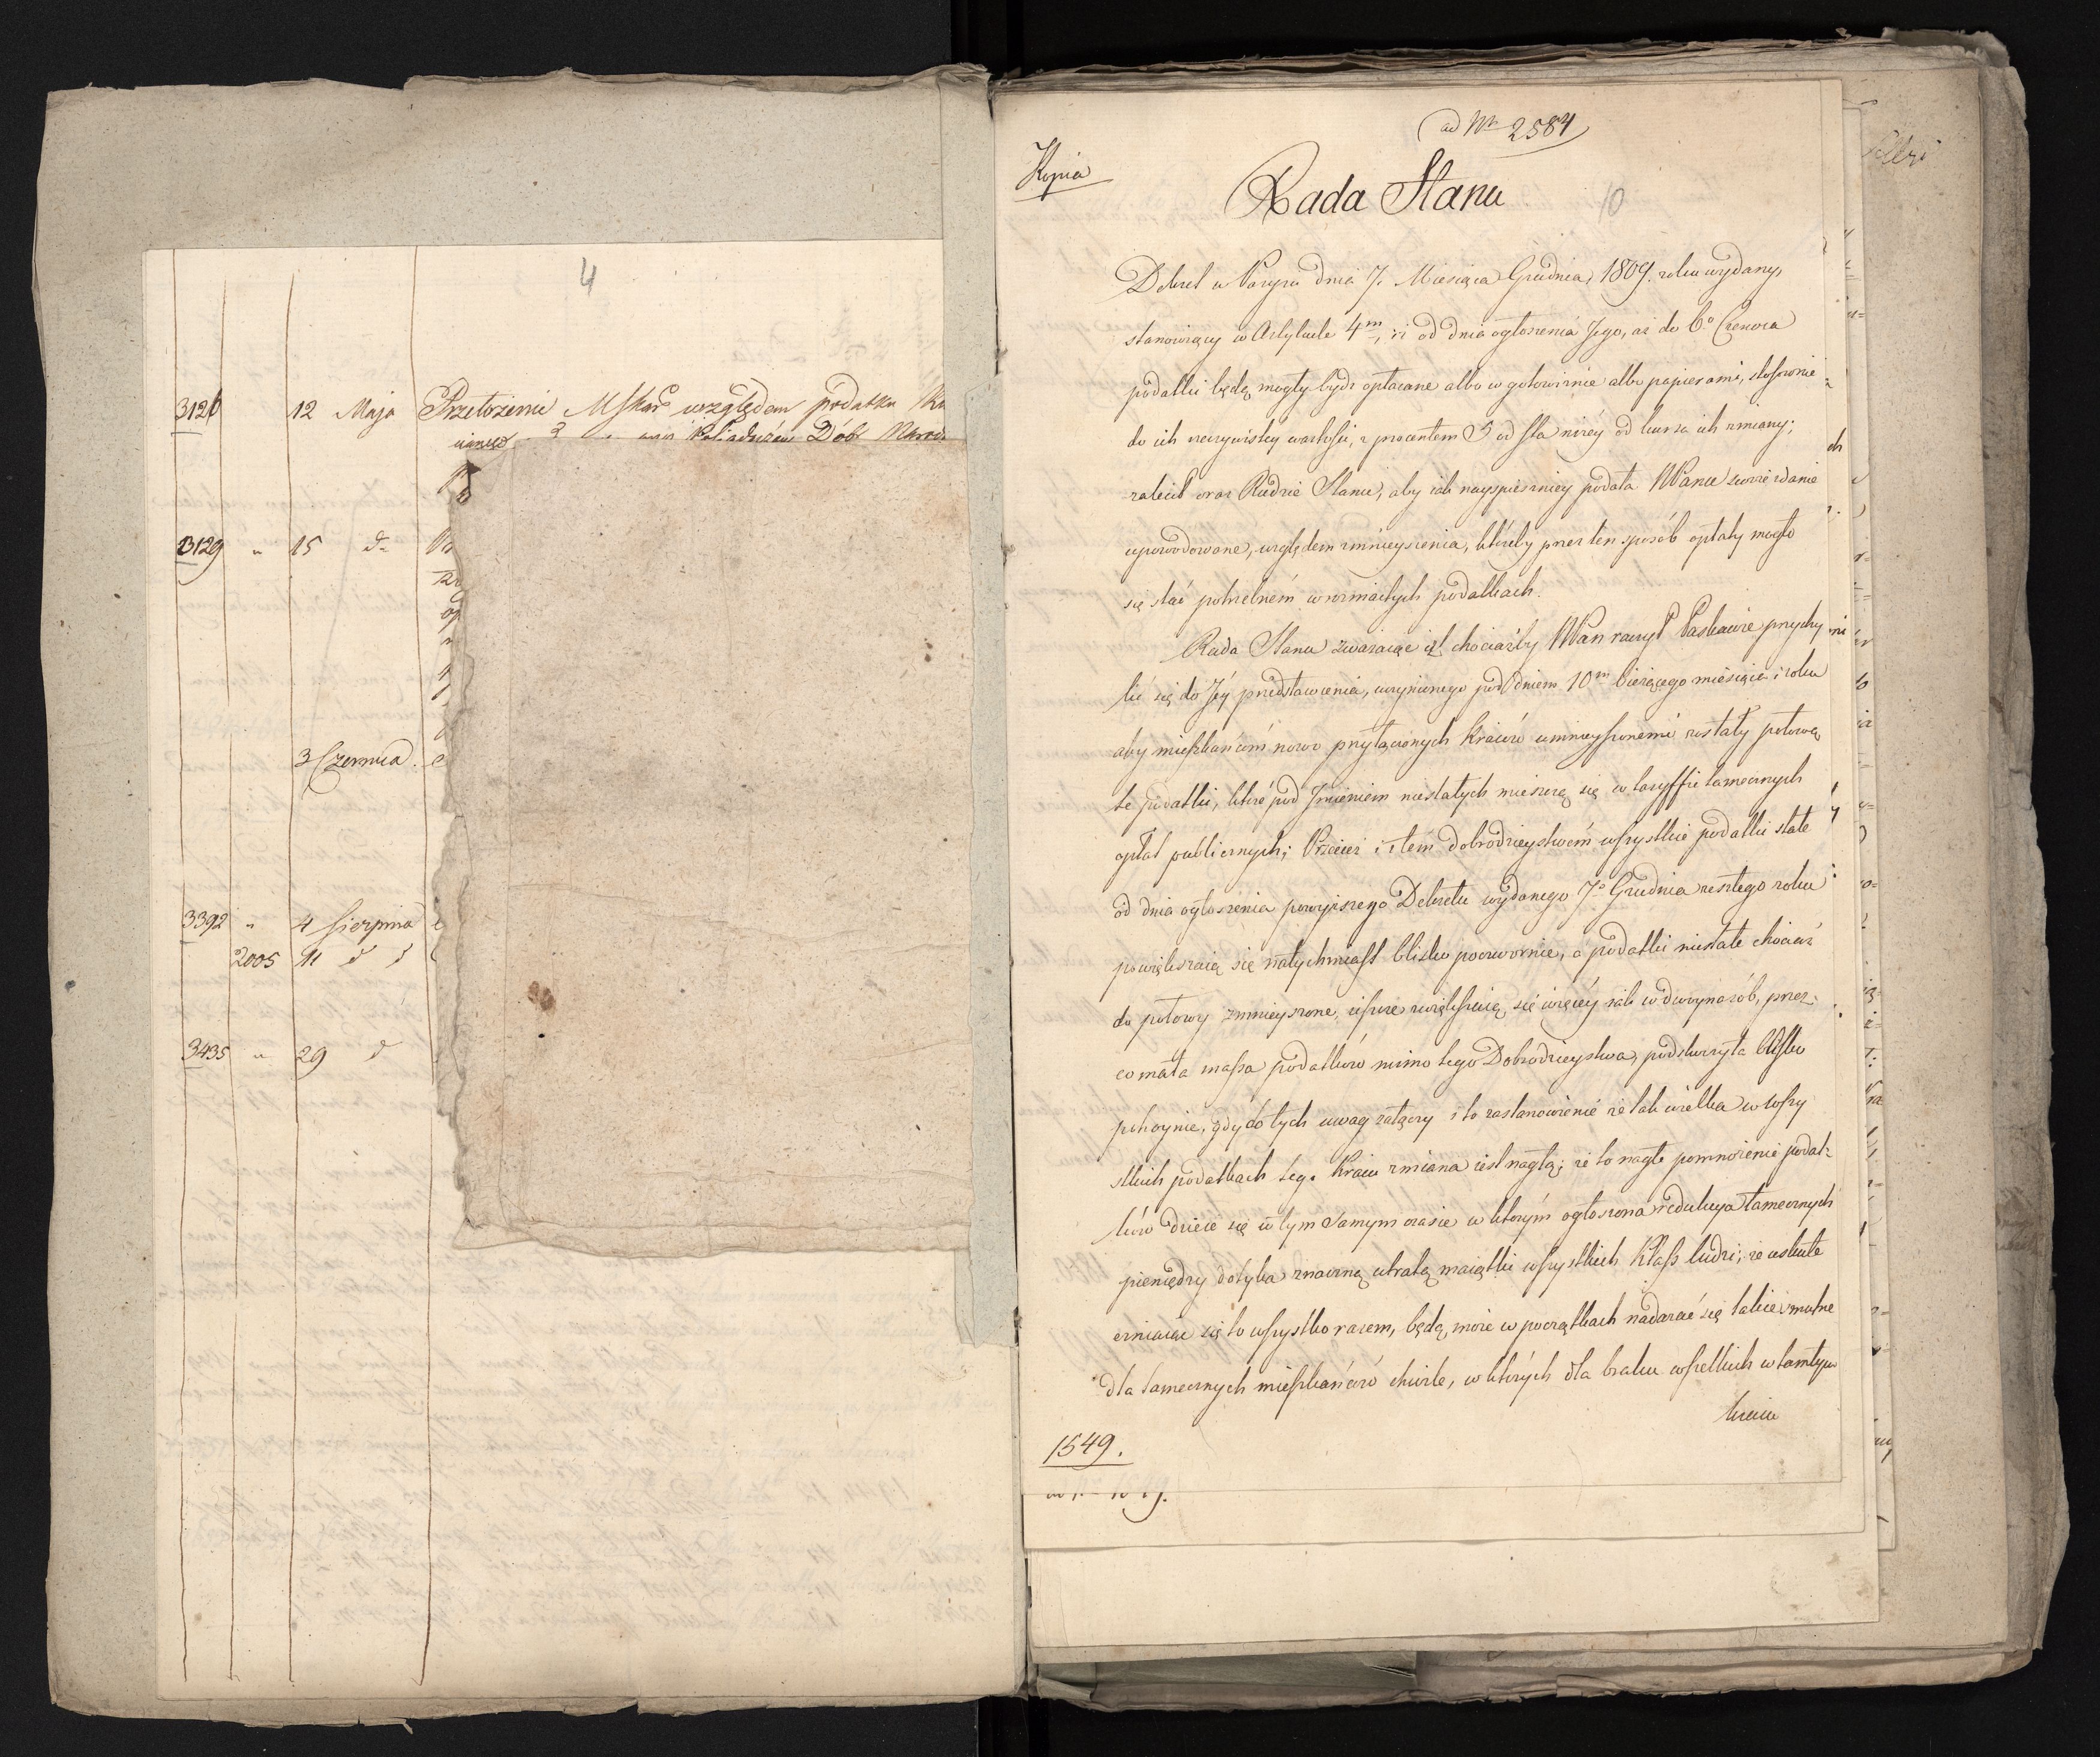 4
3126 12 Maja Przełożenie MSkar względem podatku
Dóbr Narod
3129 " 15 d-
3 Czerwca
3392 " 4 Sierpnia
2005 11 d
3435 " 29 d
ad Nr 2584
Kopia
Rada Stanu
10
Dekret w Paryżu dnia 7. Miesiąca Grudnia, 1809. roku wydany,
stanowiący w Artykule 4m, iż od dnia ogłoszenia Jego, aż do 6o Czerwca
podatki będą mogły bydź opłacane albo w gotowiźnie albo papierami, stosownie
do ich rzeczywistey wartości, z procentem 5 od sta niżéy od kursu ich zmiany;
zalecił oraz Radzie Stanu, aby iak nayspieszniey podała WPanu swoie zdanie
upowodowane, względem zmnieyszenia, któreby przez ten sposób opłaty mogło
się stać potrzebném w rozmaitych podatkach.
Rada Stanu zważaiąc iż chociażby WPan raczył łaskawie przychy
lić się do Jéy przedstawienia, uczynionego pod dniem 10m bieżącego miesiąca i roku
aby mieszkańcóm nowo przyłączonych Kraiów umnieyszonemi zostały połową
te podatki, które pod Jmieniem niestałych mieszczą się w taryffie tamecznych
opłat publicznych; Przecież i z tém dobrodzieystwem wszystkie podatki stałe
od dnia ogłoszenia powyższego Dekretu wydanego 7o Grudnia zeszłego roku
powiększaią się natychmiast blisko poczwornie, a podatki niestałe chociaż
do połowy zmnieyszone, ieszcze zwiększaią się więcéy iak w dwóynasób, przez
co cała massa podatków mimo tego Dobrodzieystwa, podskoczyła blisko
potróynie, gdy do tych uwag załączy i to zastanowienie że tak wielka w wszy
stkich podatkach tego Kraiu zmiana iest nagłą; że to nagłe pomnożenie podat-
ków dzieie się w tym samym czasie w którym ogłoszona redukcya tamecznych
pieniędzy dotyka znaczną utratą maiątki wszystkich Klass ludzi; że uskute
czniaiąc się to wszystko razem, będą może w początkach nadarzać się takie smutne
dla tamecznych mieszkańców chwile, w których dla braku wszelkich w tamtym
kraiu
1549.